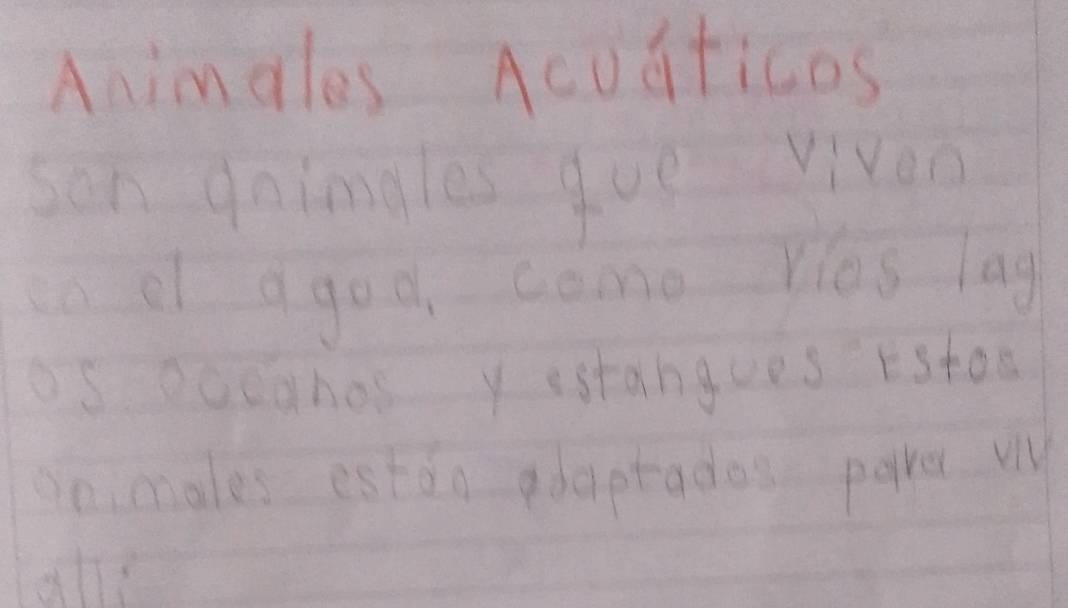 Animales Acuáticos
son animales que viven
en el agua, como ríos lag
os océanos y estanques Estos
animales están adaptados para viv
allí